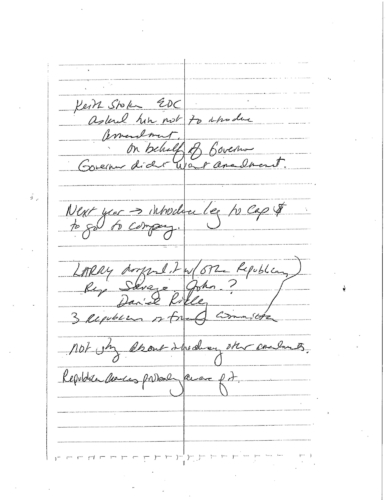 Keith Stokes EDC
asked him not to introduce
amendment.
on behalf of Governor
Governor didn't want amendment.
Next year → introduce leg to cap $
to go to company.
LARRY w/ other Republicans
Rep Savage, John. ?
Daniel Reilly
3 Republicans on Committee
not about introducing other amendments.
Republican Caucus probably aware of it.